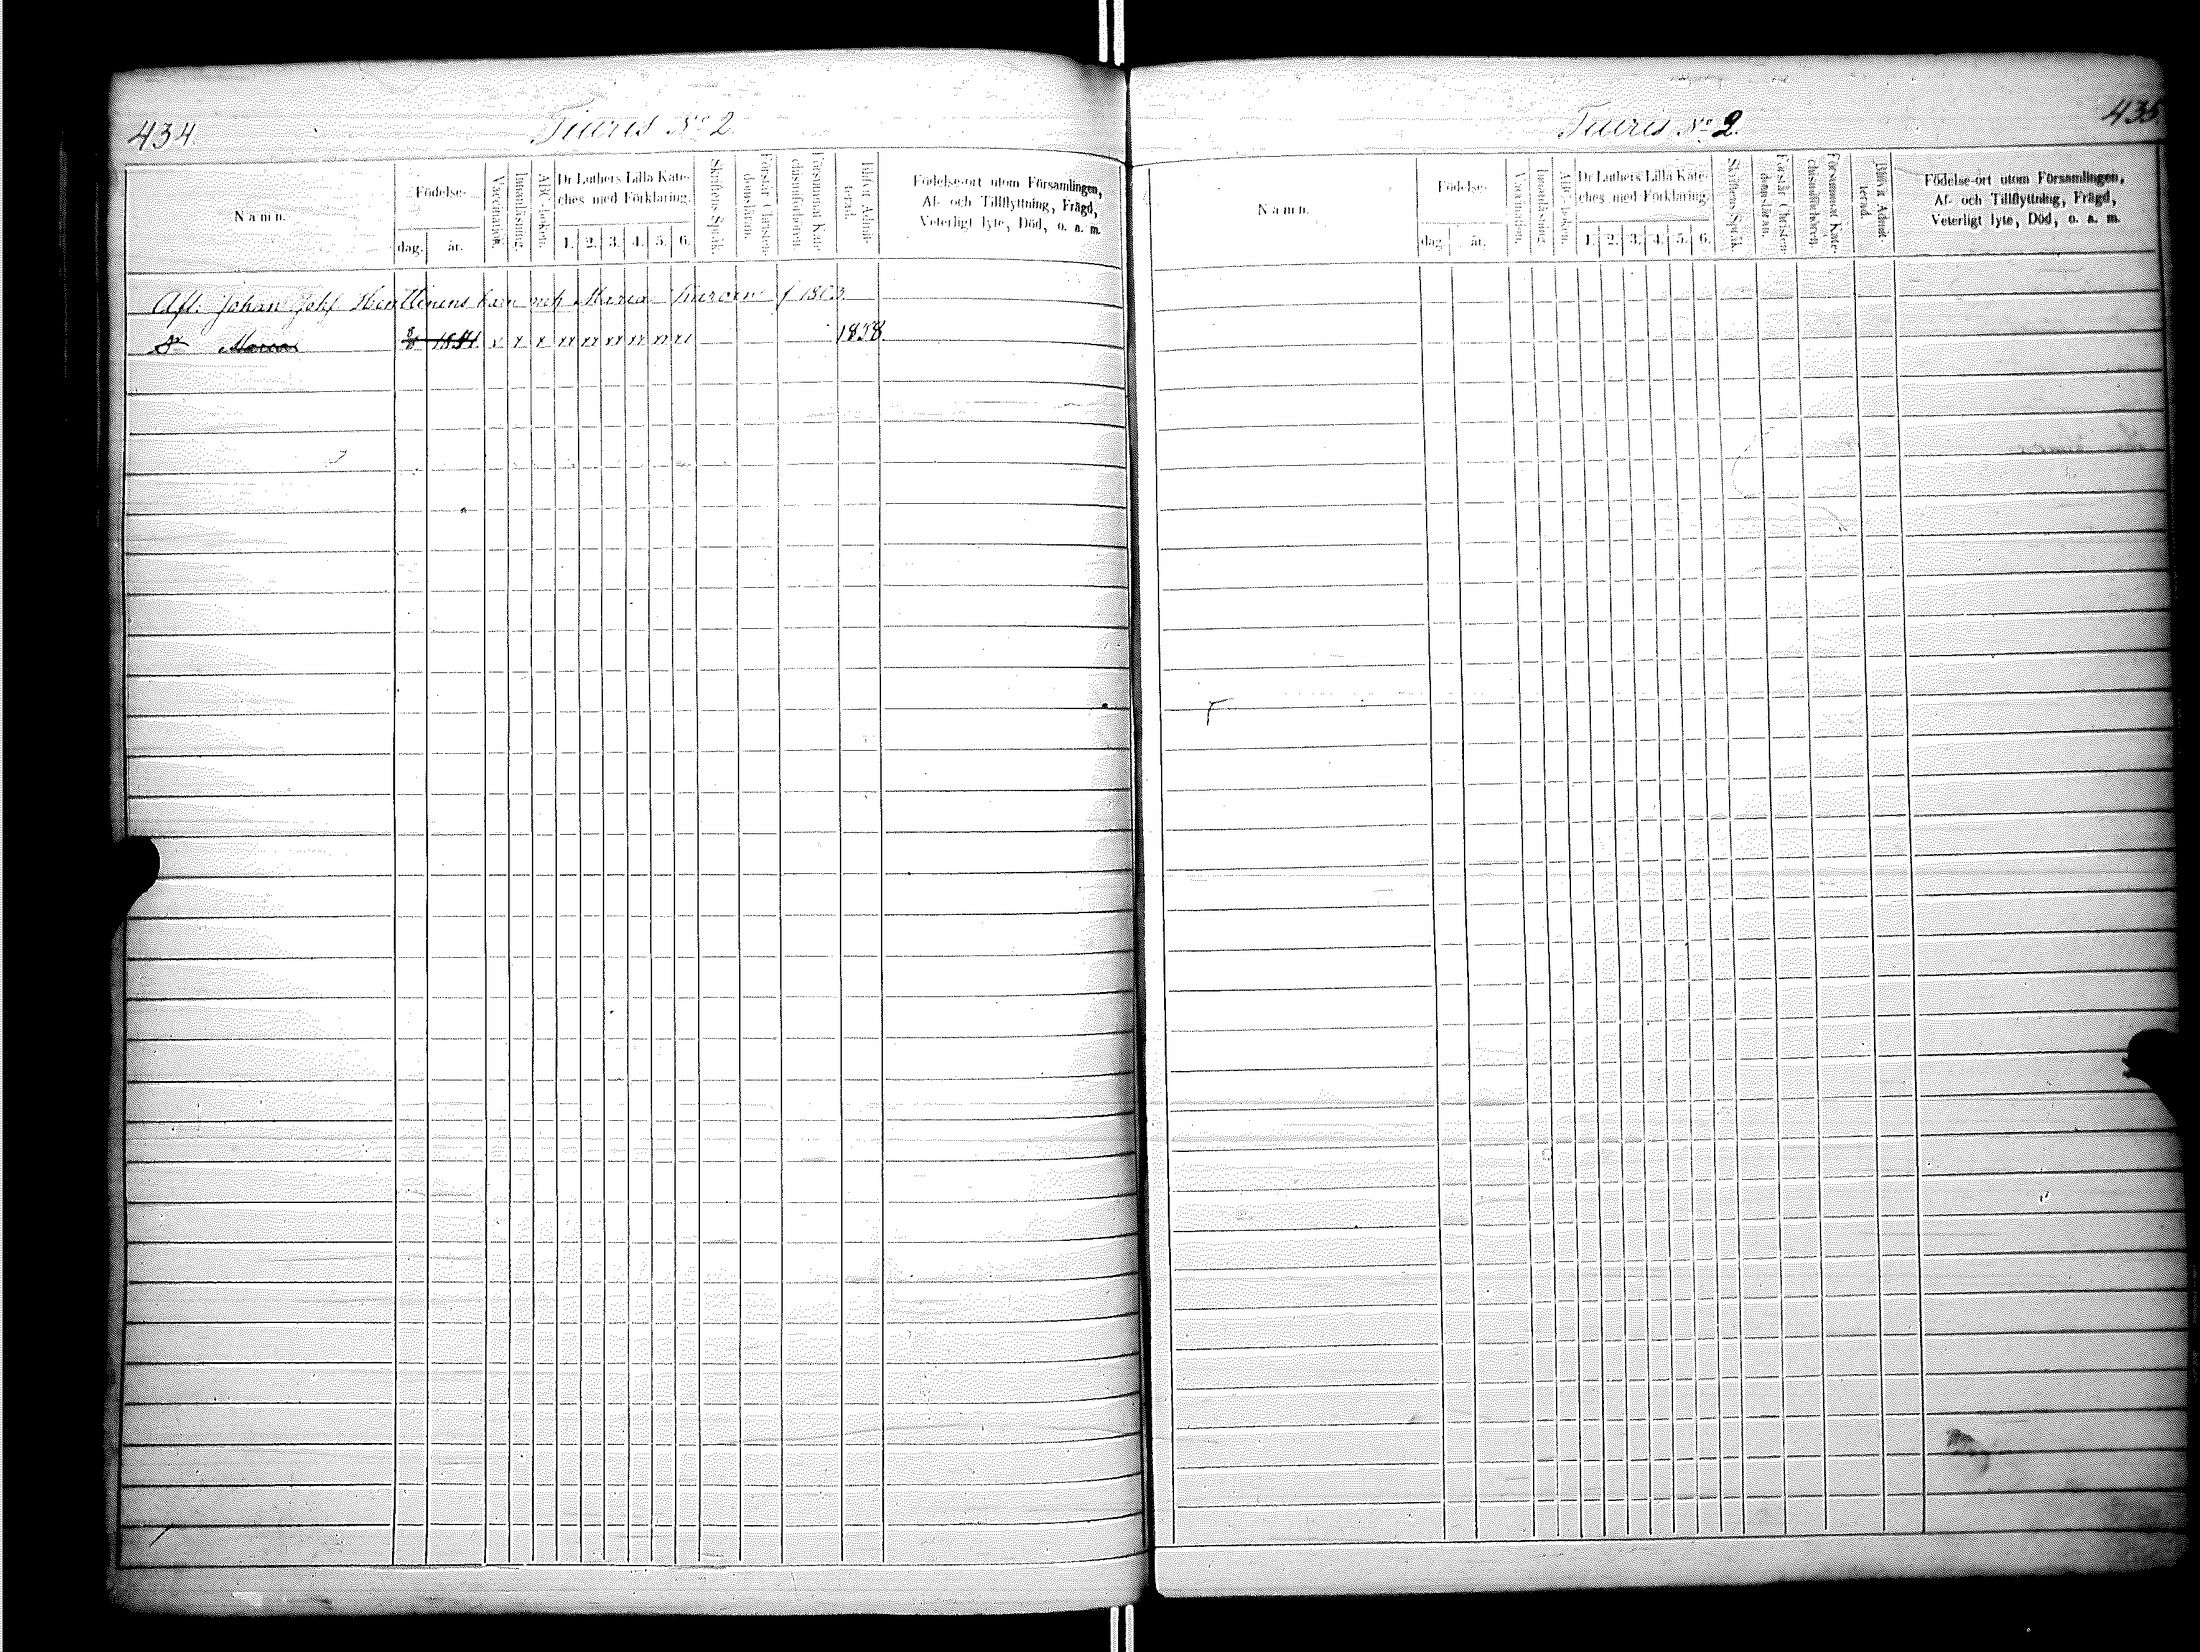 434.
Tiuris No 2
Namn.
Födelse-
dag.
år.
Vaccination.
Innanläsning.
ABC-boken.
Dr Luthers Lilla Kate-
ches med Förklaring.
1. 2. 3. 4. 5. 6.
Skriftens Språk.
Förstår Christen-
domsläran.
Försummat Kate-
chismiförhören.
Blifvit Admit-
terad.
Födelse-ort utom Församlingen,
Af- och Tillflyttning, Frägd,
Veterligt lyte, Död, o. a. m.
Afl. Johan Joh Henttinens barn och Maria f 1803.
Dr Maria 1841. x x x xx xx xx xx xx xx 1858.
435
Tiuris No 2.
Namn.
Födelse-
dag.
år.
Vaccination.
Innanläsning.
ABC-boken.
Dr Luthers Lilla Kate-
ches med Förklaring.
1. 2. 3. 4. 5. 6.
Skriftens Språk.
Förstår Christen-
domsläran.
Försummat Kate-
chismiförhören.
Blifvit Admit-
terad.
Födelse-ort utom Församlingen,
Af- och Tillflyttning, Frägd,
Veterligt lyte, Död, o. a. m.